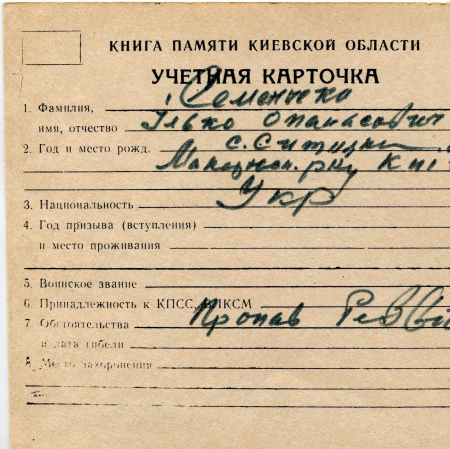 КНИГА ПАМЯТИ КИЕВСКОЙ ОБЛАСТИ
УЧЕТНАЯ КАРТОЧКА
1. Фамилия, Семенько
имя, отчество Ілько Опанасович
2. Год и место рожд. с. Ситники
Макарівск. р-ну
3. Национальность Укр
4. Год призыва (вступления)
и место проживания
5. Воинское звание
6. Принадлежность к КПСС, ВЛКСМ
7. Обстоятельства Пропав
и дата гибели
8. Место захоронения